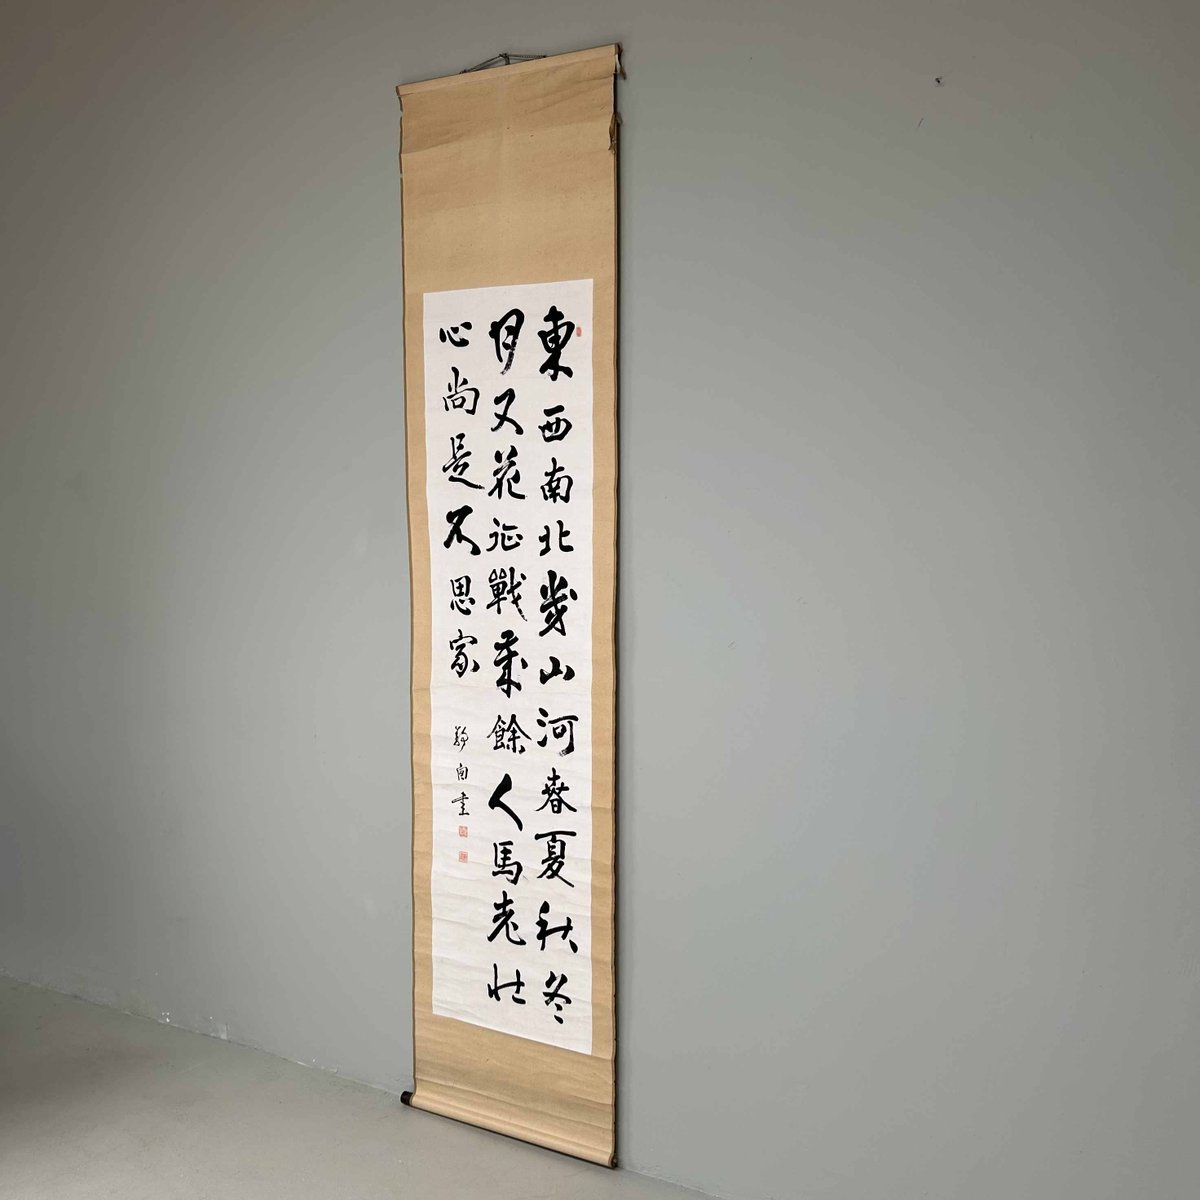 東西南北幾山河春夏秋冬
月又花征戰歳餘人馬老壯
心尚是不思家
書